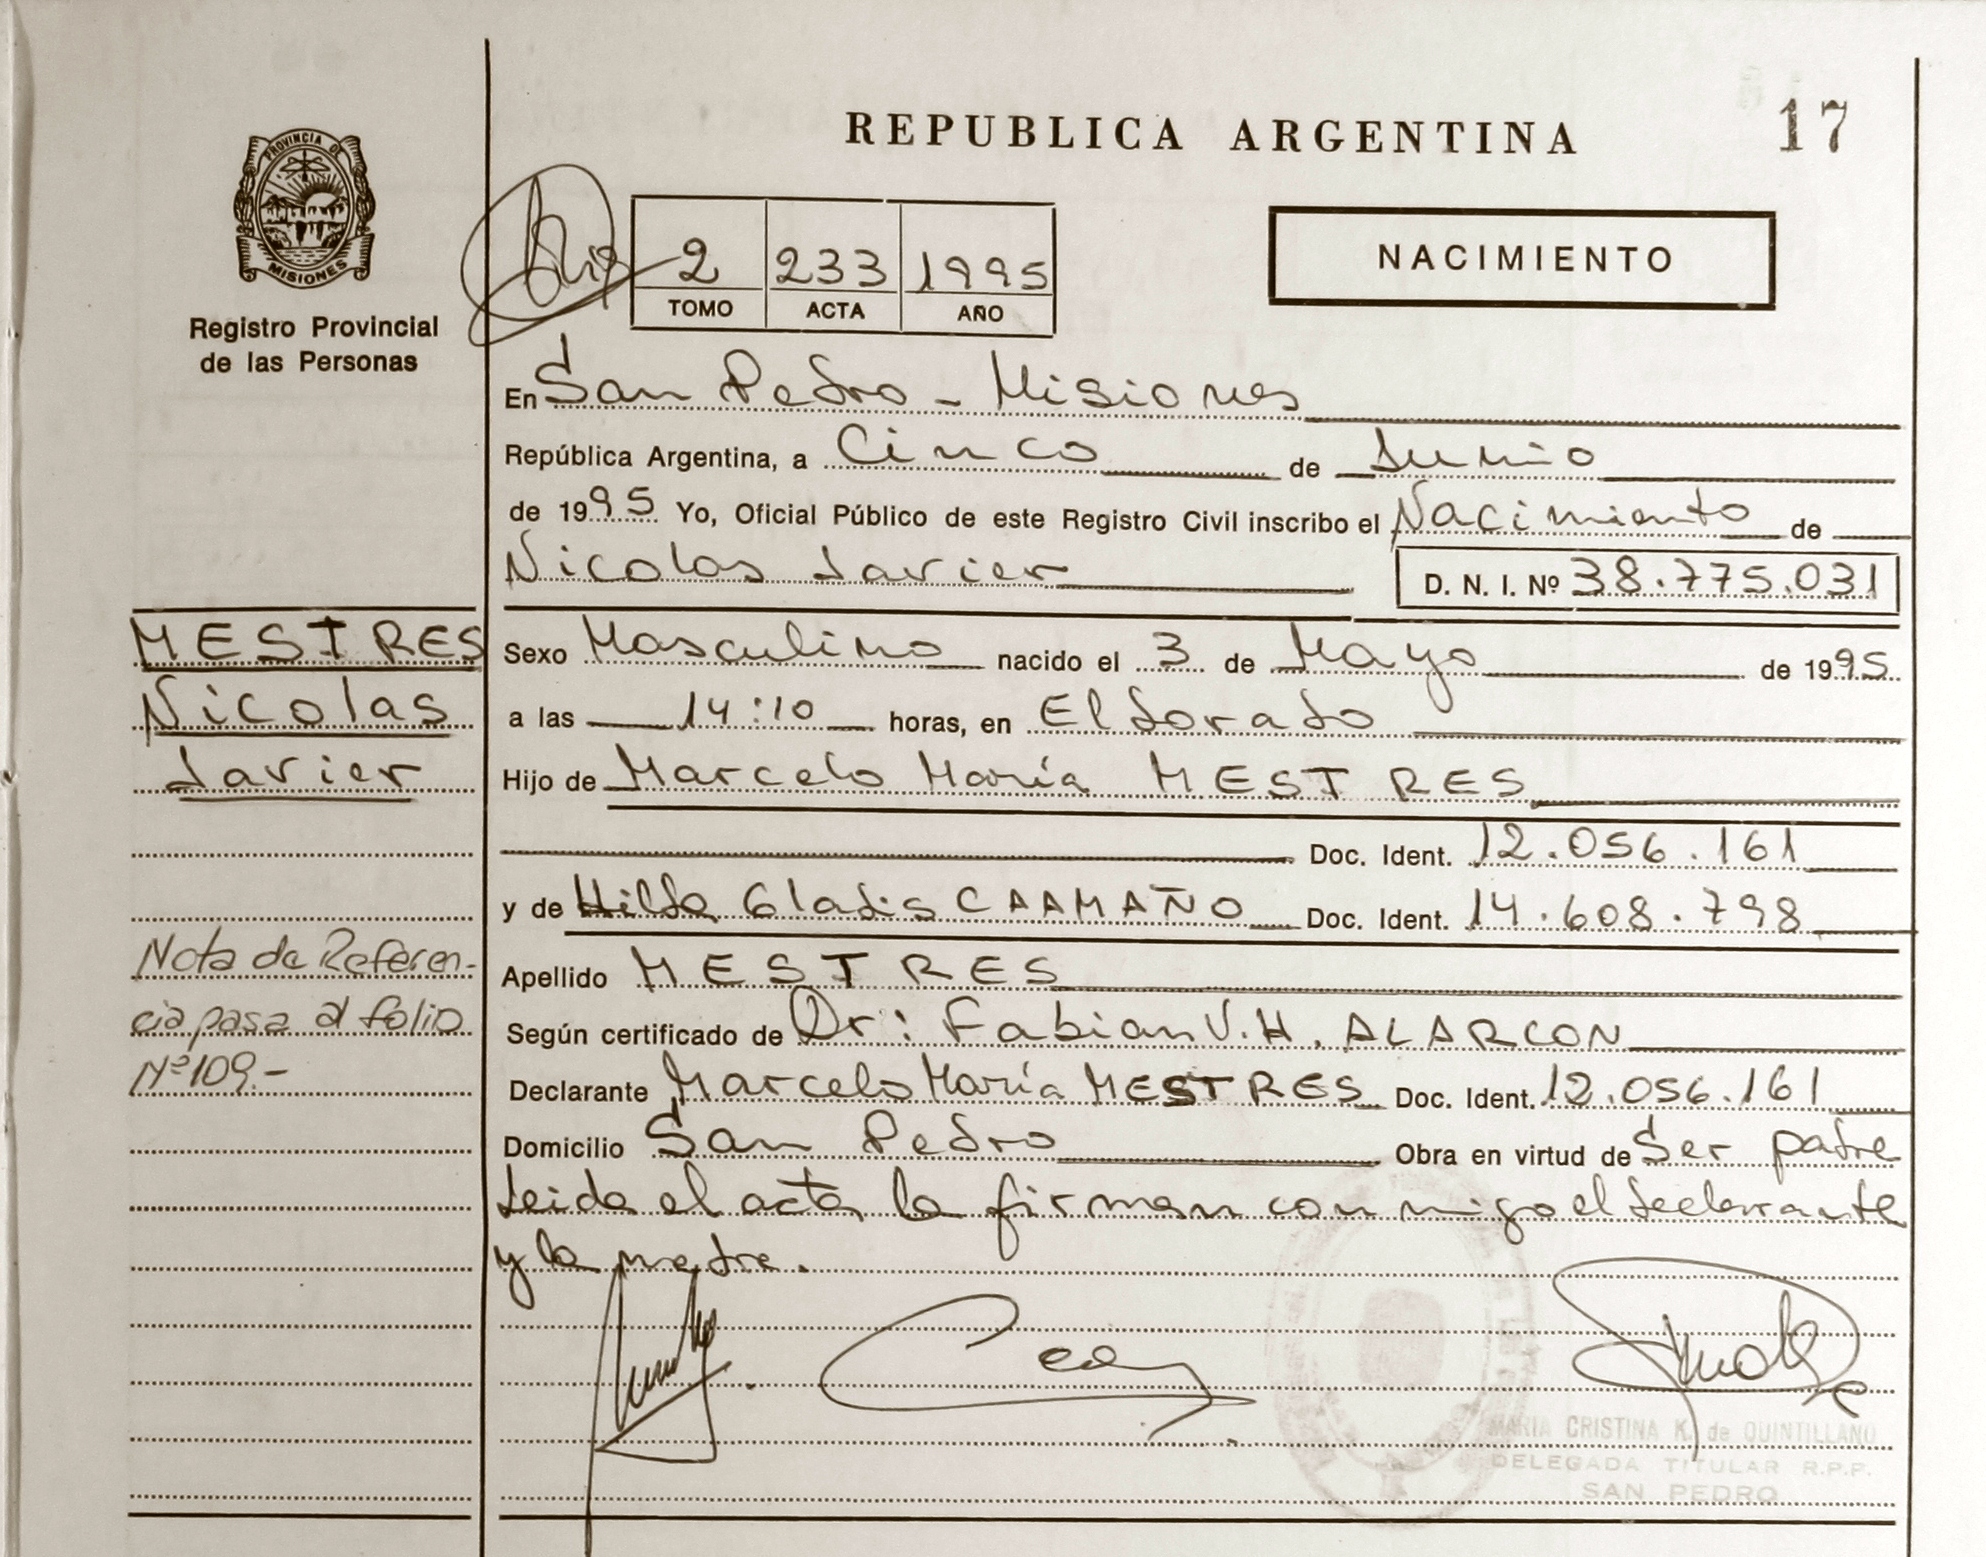 REPUBLICA ARGENTINA
17
PROVINCIA DE
MISIONES
Registro Provincial
de las Personas
2 233 1995
TOMO ACTA AÑO
NACIMIENTO
En San Pedro - Misiones
República Argentina, a Cinco de Junio
de 1995 Yo, Oficial Público de este Registro Civil inscribo el Nacimiento de
Nicolas Javier D. N. I. Nº 38.775.031
MESTRES
Nicolas
Javier
Sexo Masculino nacido el 3 de Mayo de 1995
a las 14:10 horas, en Eldorado
Hijo de Marcelo María MESTRES
Doc. Ident. 12.056.161
y de Hilda Gladis CAAMAÑO Doc. Ident. 14.608.798
Nota de Referen-
cia pasa al folio
Nº 109.-
Apellido MESTRES
Según certificado de Dr: Fabian V.H. ALARCON
Declarante Marcelo María MESTRES Doc. Ident. 12.056.161
Domicilio San Pedro Obra en virtud de Ser padre
Leida el acta la firman conmigo el declarante
y la madre.
MARIA CRISTINA K. de QUINTILLANO
DELEGADA TITULAR R.P.P.
SAN PEDRO